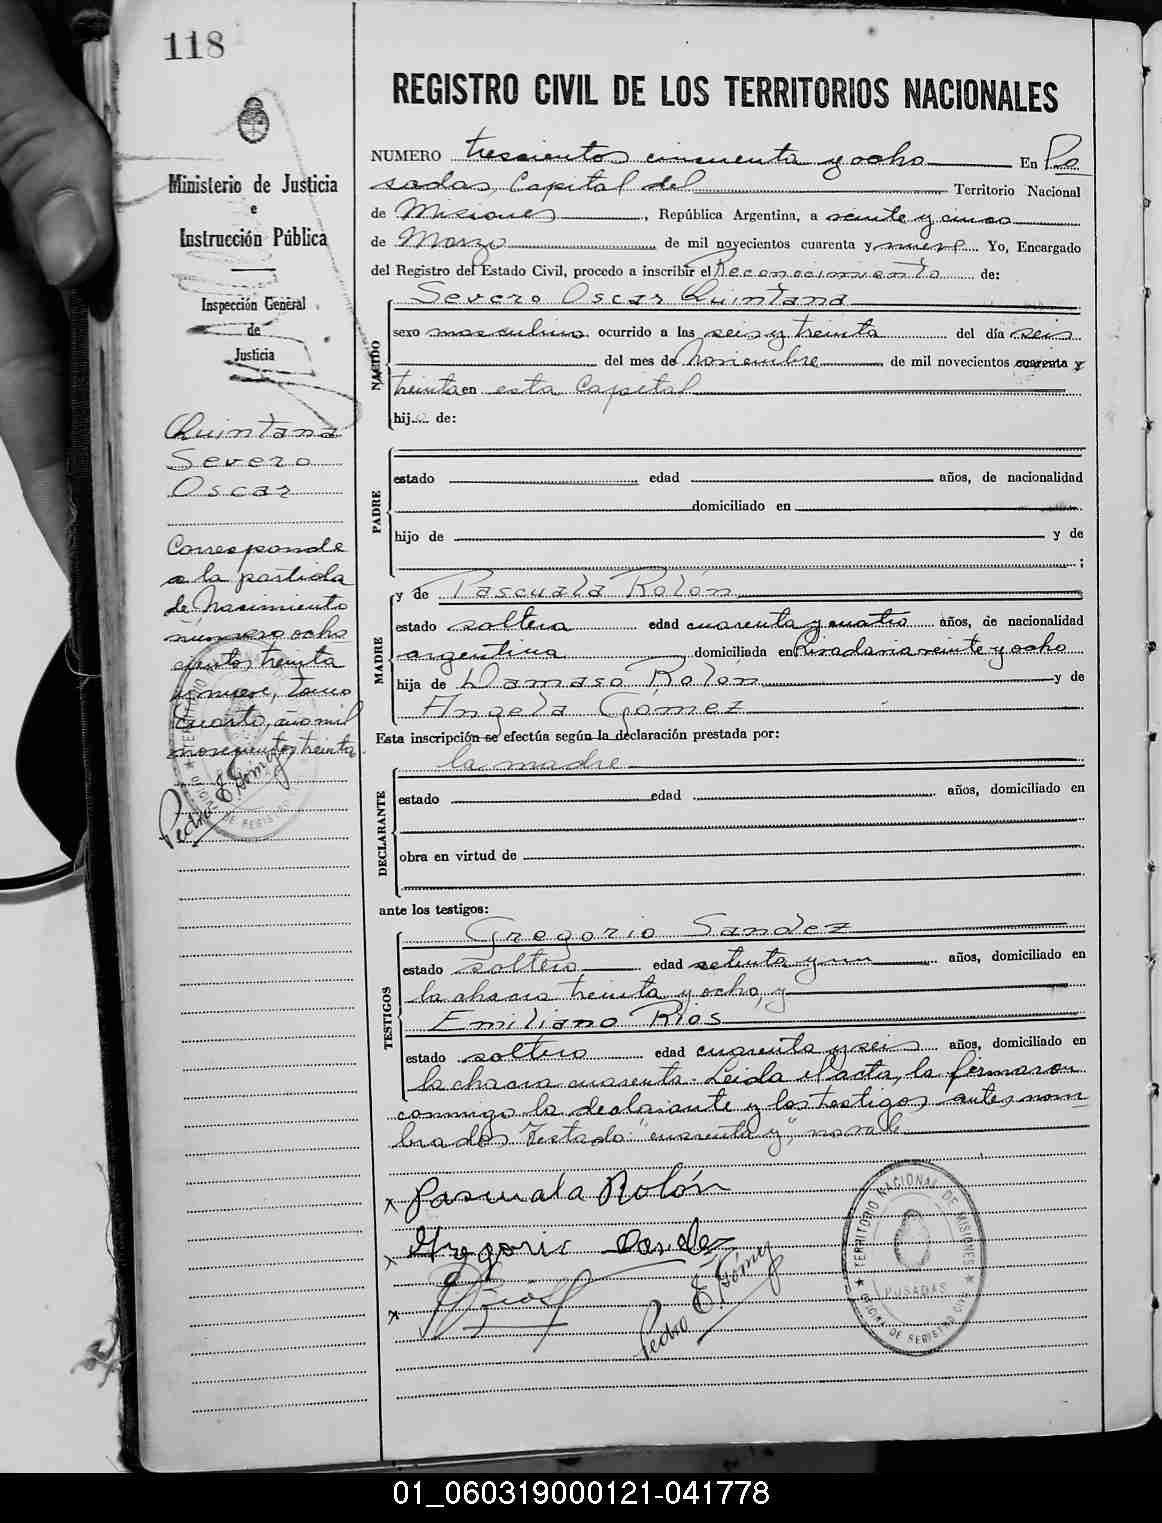 118
Ministerio de Justicia
e
Instrucción Pública
Inspección General
de
Justicia
Quintana
Severo
Oscar
Corresponde
a la partida
de Nacimiento
número ocho
cientos treinta
y nueve, tomo
cuarto, año mil
novecientos treinta.
Pedro E. Gómez
REGISTRO CIVIL DE LOS TERRITORIOS NACIONALES
NUMERO trescientos cincuenta y ocho En Po
sadas, Capital del Territorio Nacional
de Misiones, República Argentina, a veinte y cinco
de Marzo de mil novecientos cuarenta y nueve. Yo, Encargado
del Registro del Estado Civil, procedo a inscribir el Reconocimiento de:
NACIDO
Severo Oscar Quintana
sexo masculino ocurrido a las seis y treinta del día seis
del mes de Noviembre de mil novecientos cuarenta y
treinta en esta Capital
hijo de:
PADRE
estado edad años, de nacionalidad
domiciliado en
hijo de y de
;
MADRE
y de Pascuala Rolón
estado soltera edad cuarenta y cuatro años, de nacionalidad
argentina domiciliada en Rivadavia veinte y ocho
hija de Damaso Rolón y de
Angela Gomez
Esta inscripción se efectúa según la declaración prestada por:
DECLARANTE
la madre
estado edad años, domiciliado en
obra en virtud de
ante los testigos:
TESTIGOS
Gregorio Sandez
estado soltero edad setenta y un años, domiciliado en
la chacra treinta y ocho, y
Emiliano Rios
estado soltero edad cuarenta y seis años, domiciliado en
la chacra cuarenta. Leida el acta, la firmaron
conmigo la declarante y los testigos antes nom-
brados. Testado: "cuarenta y", no vale
x Pascuala Rolón
x Gregorio Sandez
x
Pedro E. Gómez
★ TERRITORIO NACIONAL DE MISIONES ★
POSADAS
OFICINA DE REGISTRO CIVIL
01_060319000121-041778